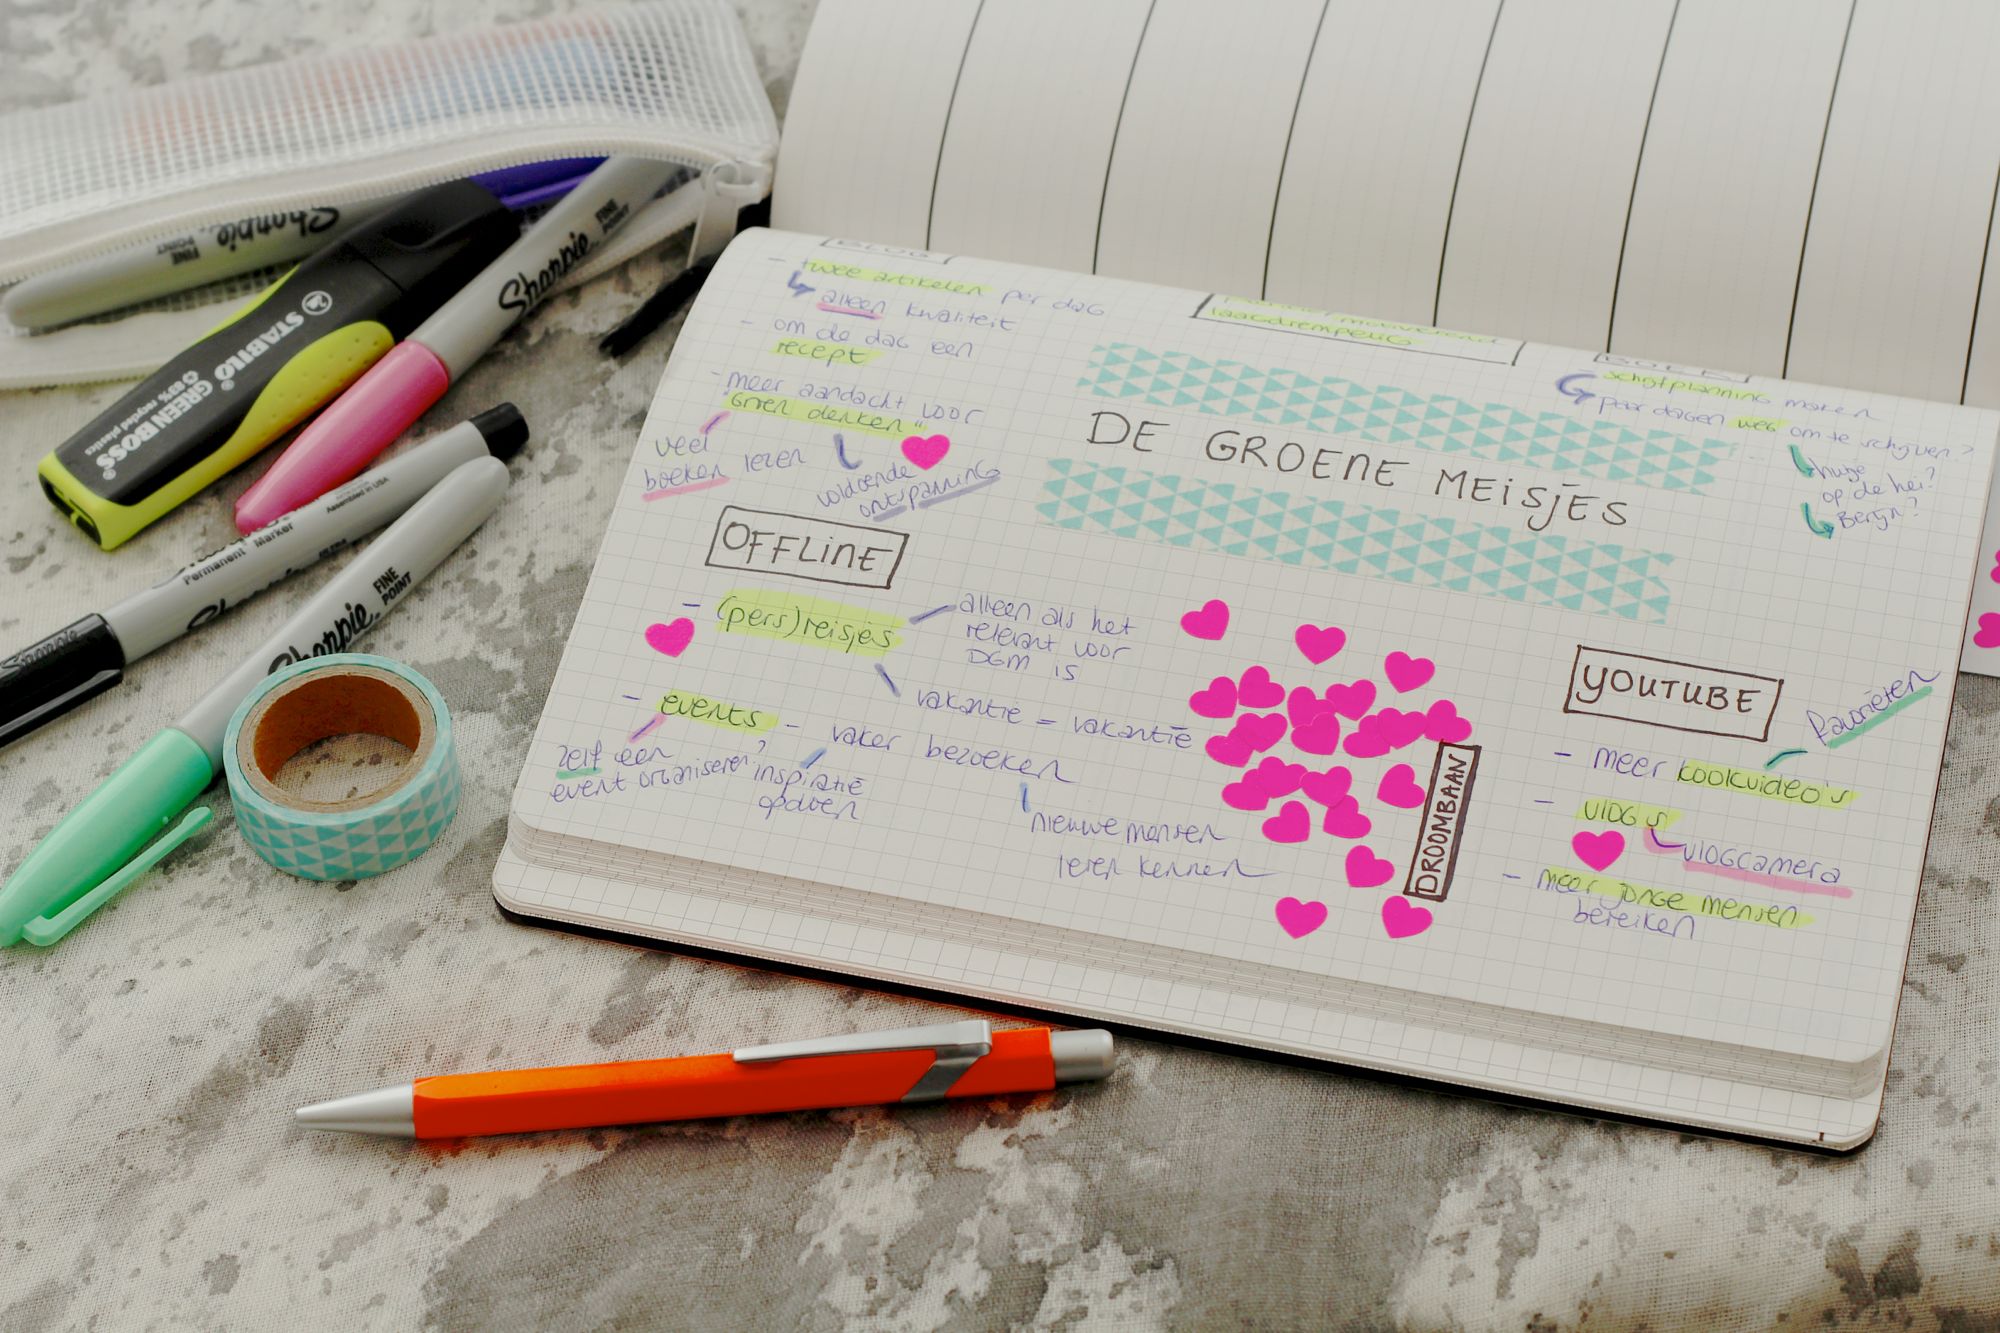 BLOG
- twee artikelen per dag
alleen kwaliteit
- om de dag een
recept
- meer aandacht voor
Groen denken"
veel
boeken lezen
voldoende
ontspanning
laagdrempelig
BOEK
schrijfplanning maken
paar dagen weg om te schrijven?
huisje
op de hei?
Berlijn?
DE GROENE MEISJES
OFFLINE
- (pers)reisjes
alleen als het
relevant voor
DGM is
vakantie = vakantie
- events - vaker bezoeken
zelf een
event organiseren?
inspiratie
opdoen
nieuwe mensen
leren kennen
DROOMBAAN
YOUTUBE
favorieten
- meer kookvideo's
- vlogs
vlogcamera
- meer jonge mensen
bereiken
Sharpie
FINE
POINT
STABILO
GREEN BOSS
83% recycled plastic
Sharpie
FINE
POINT
Permanent Marker
Assembled in USA
Sharpie
Sharpie
FINE
POINT